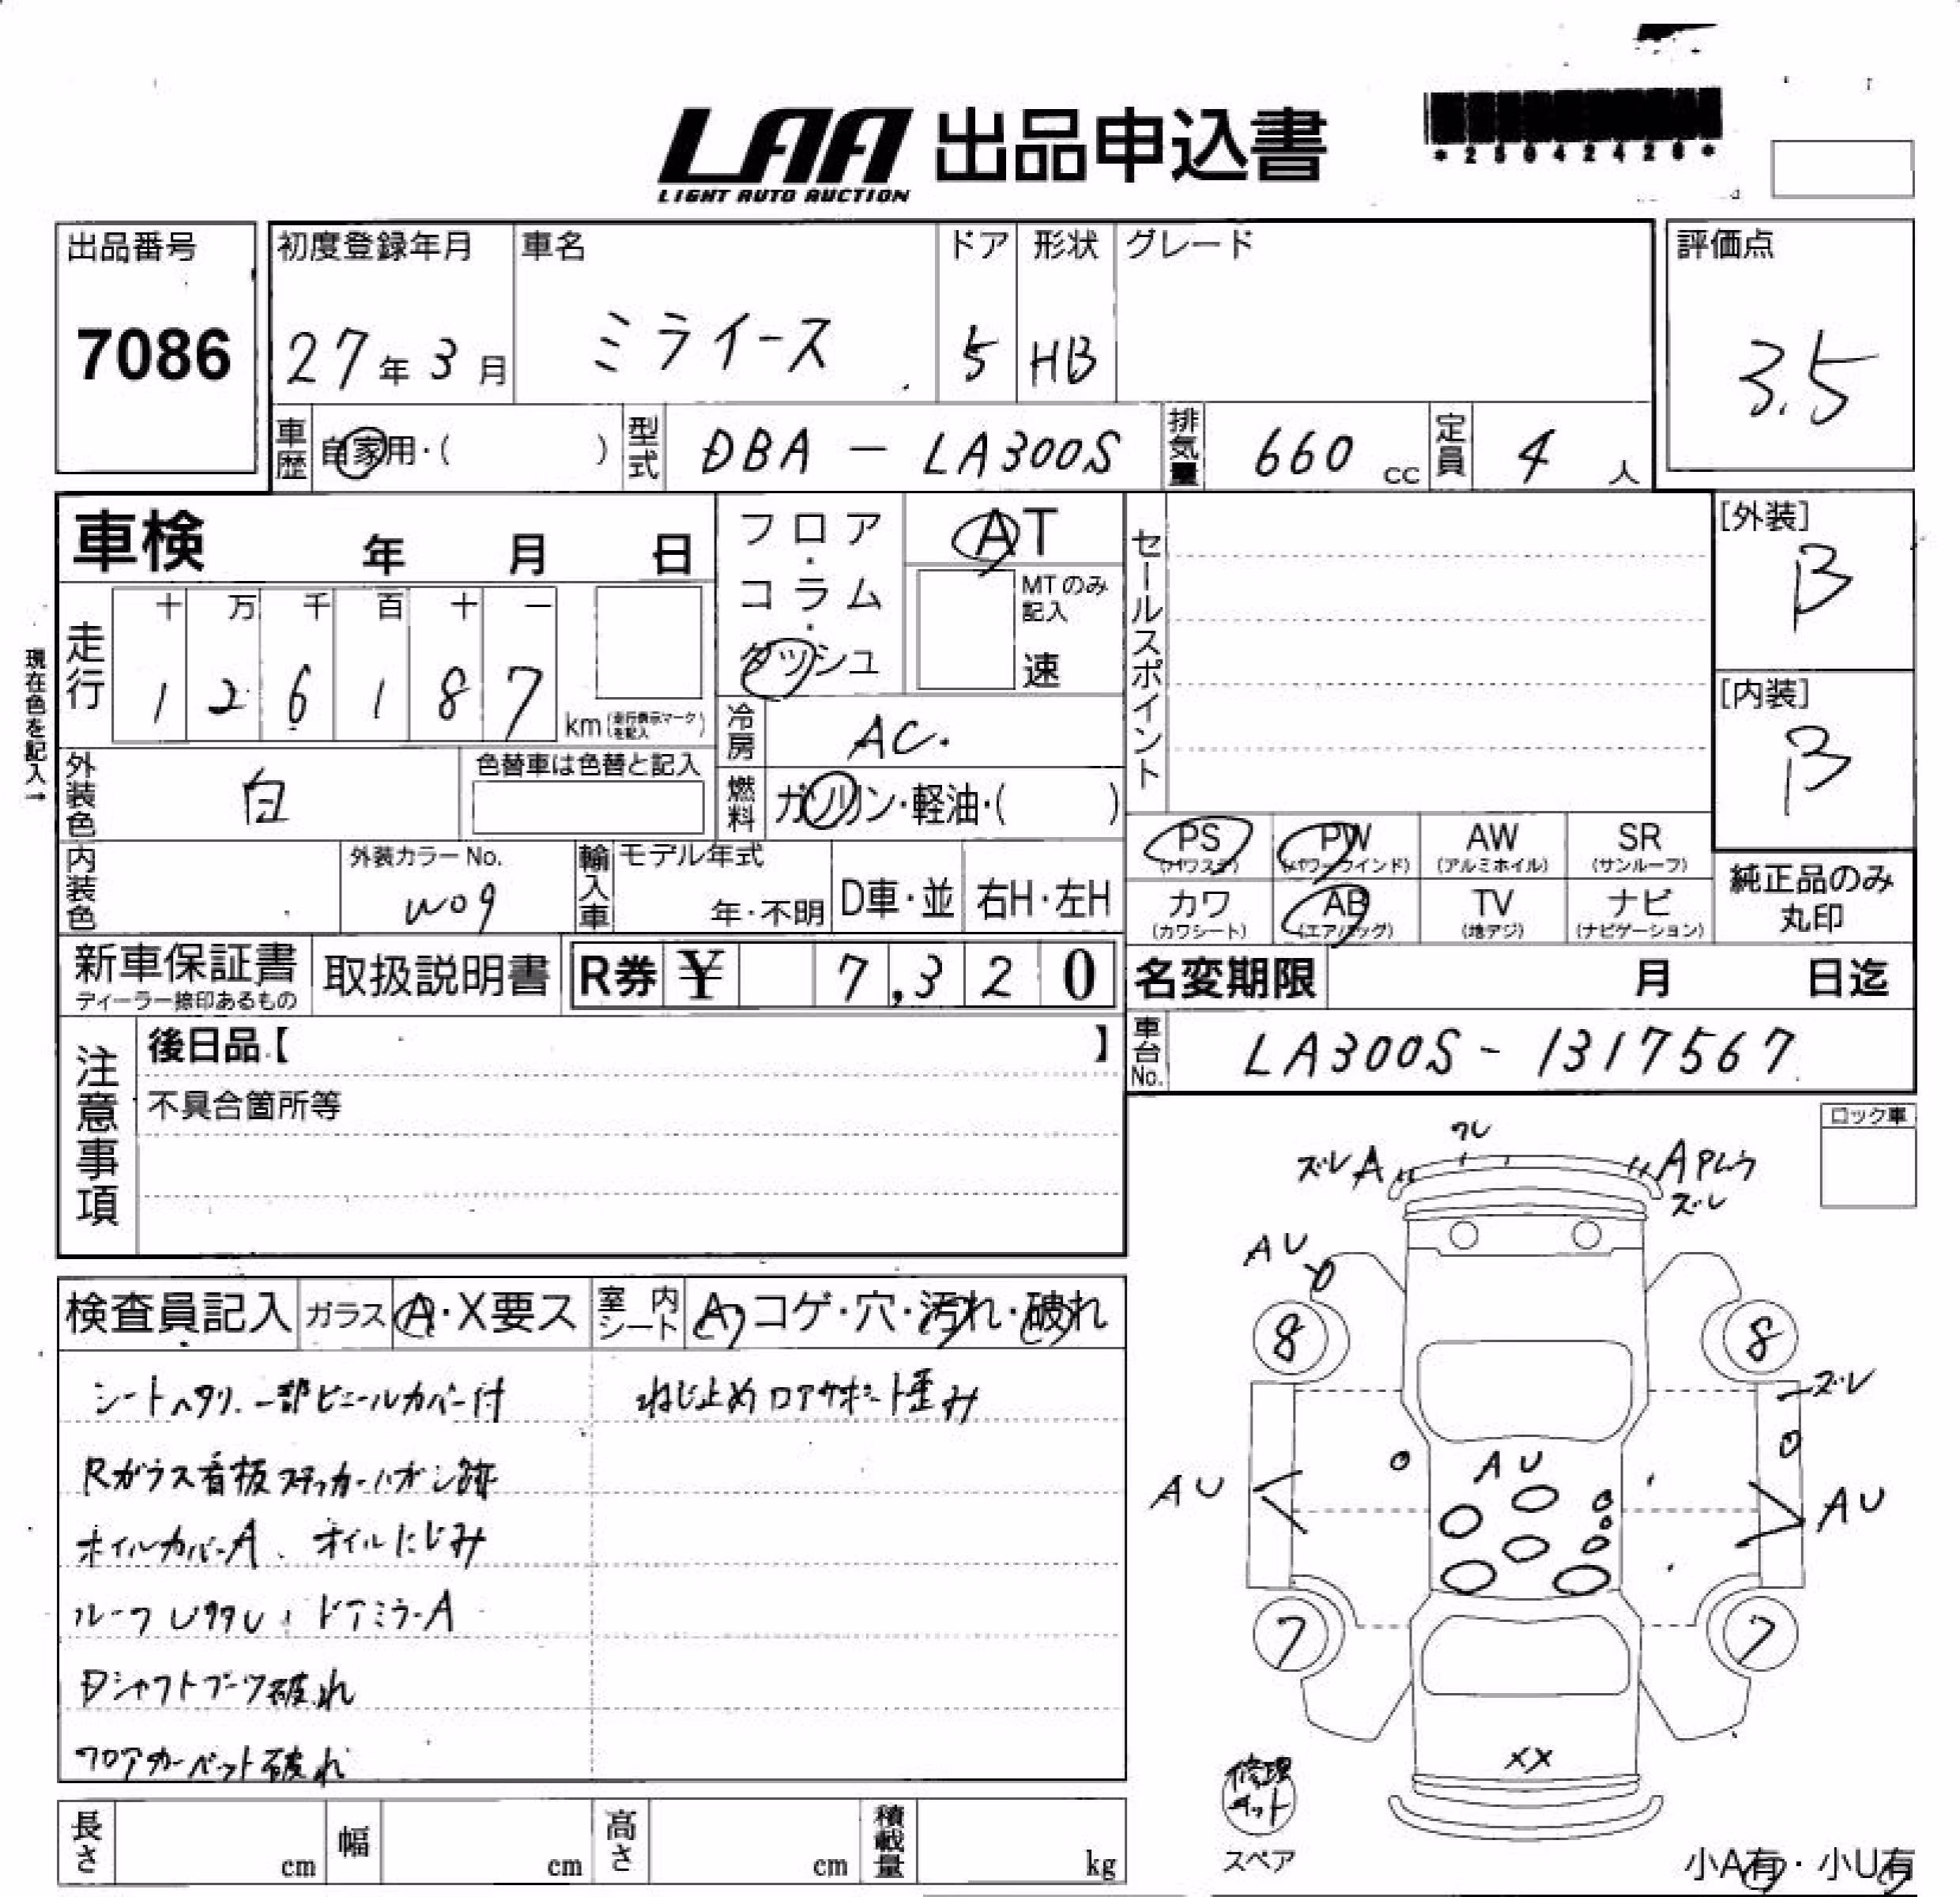 LAA 出品申込書
LIGHT AUTO AUCTION
*25042420*
出品番号 初度登録年月 車名 ドア 形状 グレード 評価点
7086 27年3月 ミライース 5 HB 3.5
車歴 自家用・( ) 型式 DBA - LA300S 排気量 660 cc 定員 4 人
車検 年 月 日 フロア・コラム・ダッシュ AT セールスポイント [外装] B
MTのみ記入 速
現在色を記入→
走行 十 万 千 百 十 一
1 2 6 1 8 7 km(走行表示マークを記入)
冷房 AC. [内装] B
外装色 白 色替車は色替と記入 燃料 ガソリン・軽油・( )
PS (パワステ) PW (パワーウインド) AW (アルミホイル) SR (サンルーフ)
内装色 外装カラーNo. W09 輸入車 モデル年式 年・不明 D車・並 右H・左H
カワ (カワシート) AB (エアバッグ) TV (地デジ) ナビ (ナビゲーション) 純正品のみ丸印
新車保証書 ディーラー捺印あるもの 取扱説明書 R券 ¥ 7,320
名変期限 月 日迄
注意事項 後日品【 】
車台No. LA300S-1317567
不具合箇所等
ロック車
検査員記入 ガラス A・X要ス 室内シート A・コゲ・穴・汚れ・破れ
シートヘタリ. 一部ビニールカバー付 ねじ止めロアサポート歪み
Rガラス看板ステッカーハガシ跡
ホイルカバーA、オイルにじみ
ルーフU タタU ドアミラーA
Dシャフトブーツ破れ
フロアカーペット破れ
ワレ
ズレ A
A Pムラ
ズレ
AU
8 8
ズレ
AU
AU AU
7 7
XX
修理キット
スペア
小A有・小U有
長さ cm 幅 cm 高さ cm 積載量 kg